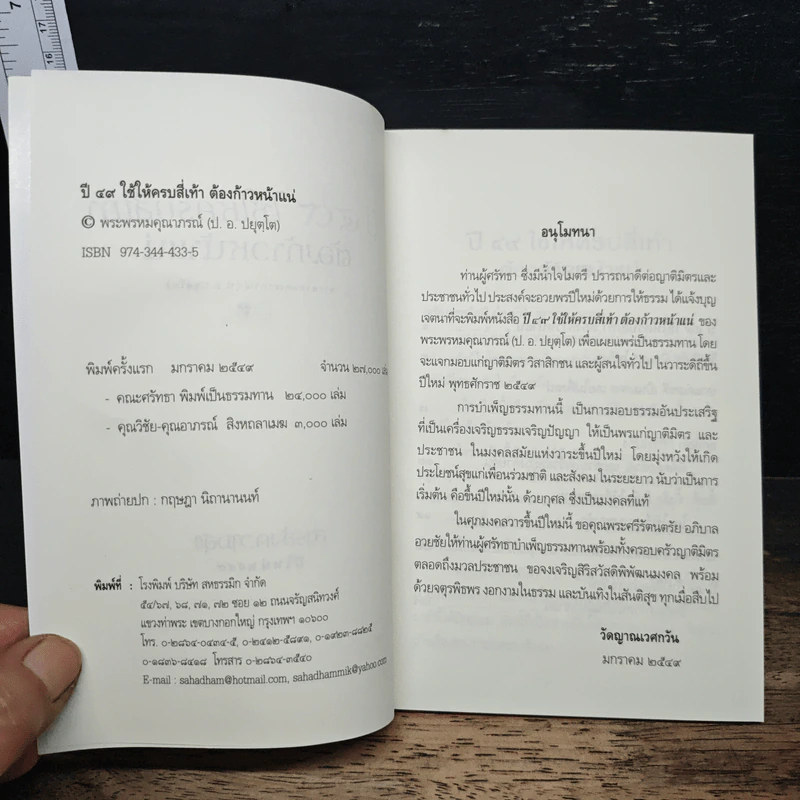 ปี ๔๙ ใช้ให้ครบสี่เท้า ต้องก้าวหน้าแน่
© พระพรหมคุณาภรณ์ (ป. อ. ปยุตฺโต)
ISBN 974-344-433-5
พิมพ์ครั้งแรก มกราคม ๒๕๔๙ จำนวน ๒๗,๐๐๐ เล่ม
- คณะศรัทธา พิมพ์เป็นธรรมทาน ๒๔,๐๐๐ เล่ม
- คุณวิชัย-คุณอาภรณ์ สิงหถลาเมฆ ๓,๐๐๐ เล่ม
ภาพถ่ายปก : กฤษฎา นิถานานนท์
พิมพ์ที่ : โรงพิมพ์ บริษัท สหธรรมิก จำกัด
๕๔/๖๗, ๖๘, ๗๑, ๗๒ ซอย ๑๒ ถนนจรัญสนิทวงศ์
แขวงท่าพระ เขตบางกอกใหญ่ กรุงเทพฯ ๑๐๖๐๐
โทร. ๐-๒๘๖๔-๐๔๓๔-๕, ๐-๒๔๑๒-๕๘๙๑, ๐-๑๙๒๓-๘๘๒๕
๐-๑๘๓๖-๘๔๑๘ โทรสาร ๐-๒๘๖๔-๓๕๔๐
E-mail : sahadham@hotmail.com, sahadhammik@yahoo.com
อนุโมทนา
ท่านผู้ศรัทธา ซึ่งมีน้ำใจไมตรี ปรารถนาดีต่อญาติมิตรและ
ประชาชนทั่วไป ประสงค์จะอวยพรปีใหม่ด้วยการให้ธรรม ได้แจ้งบุญ
เจตนาที่จะพิมพ์หนังสือ ปี ๔๙ ใช้ให้ครบสี่เท้า ต้องก้าวหน้าแน่ ของ
พระพรหมคุณาภรณ์ (ป. อ. ปยุตฺโต) เพื่อเผยแพร่เป็นธรรมทาน โดย
จะแจกมอบแก่ญาติมิตร วิสาสิกชน และผู้สนใจทั่วไป ในวาระดิถีขึ้น
ปีใหม่ พุทธศักราช ๒๕๔๙
การบำเพ็ญธรรมทานนี้ เป็นการมอบธรรมอันประเสริฐ
ที่เป็นเครื่องเจริญธรรมเจริญปัญญา ให้เป็นพรแก่ญาติมิตร และ
ประชาชน ในมงคลสมัยแห่งวาระขึ้นปีใหม่ โดยมุ่งหวังให้เกิด
ประโยชน์สุขแก่เพื่อนร่วมชาติ และสังคม ในระยะยาว นับว่าเป็นการ
เริ่มต้น คือขึ้นปีใหม่นั้น ด้วยกุศล ซึ่งเป็นมงคลที่แท้
ในศุภมงคลวารขึ้นปีใหม่นี้ ขอคุณพระศรีรัตนตรัย อภิบาล
อวยชัยให้ท่านผู้ศรัทธาบำเพ็ญธรรมทานพร้อมทั้งครอบครัวญาติมิตร
ตลอดถึงมวลประชาชน ขอจงเจริญสิริสวัสดิพิพัฒนมงคล พร้อม
ด้วยจตุรพิธพร งอกงามในธรรม และบันเทิงในสันติสุข ทุกเมื่อสืบไป
วัดญาณเวศกวัน
มกราคม ๒๕๔๙
7
17
16